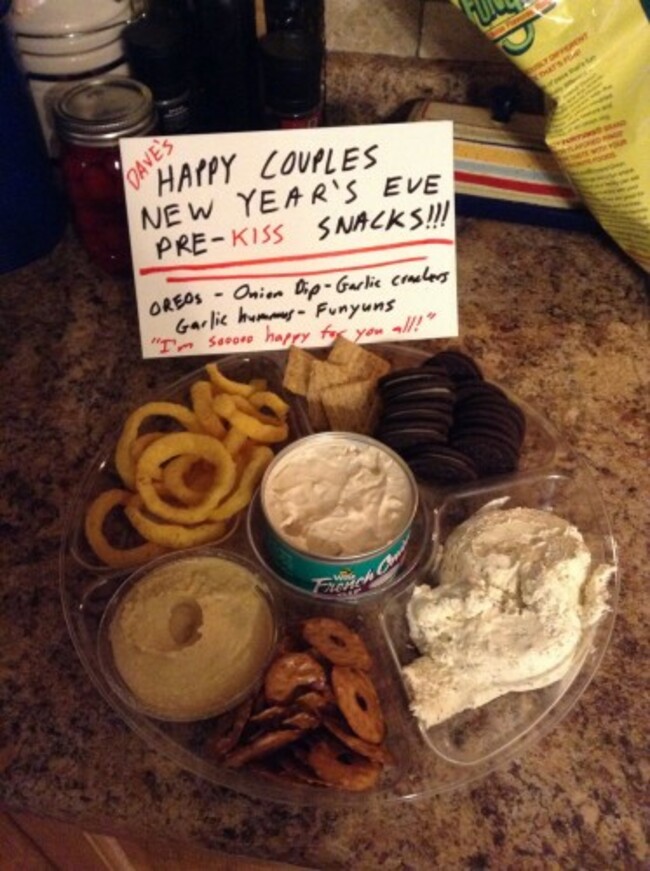 DAVE'S
HAPPY COUPLES
NEW YEAR'S EVE
PRE-KISS SNACKS!!!
OREOS - Onion Dip - Garlic crackers
Garlic hummus - Funyuns
"I'm sooooo happy for you all!"
French